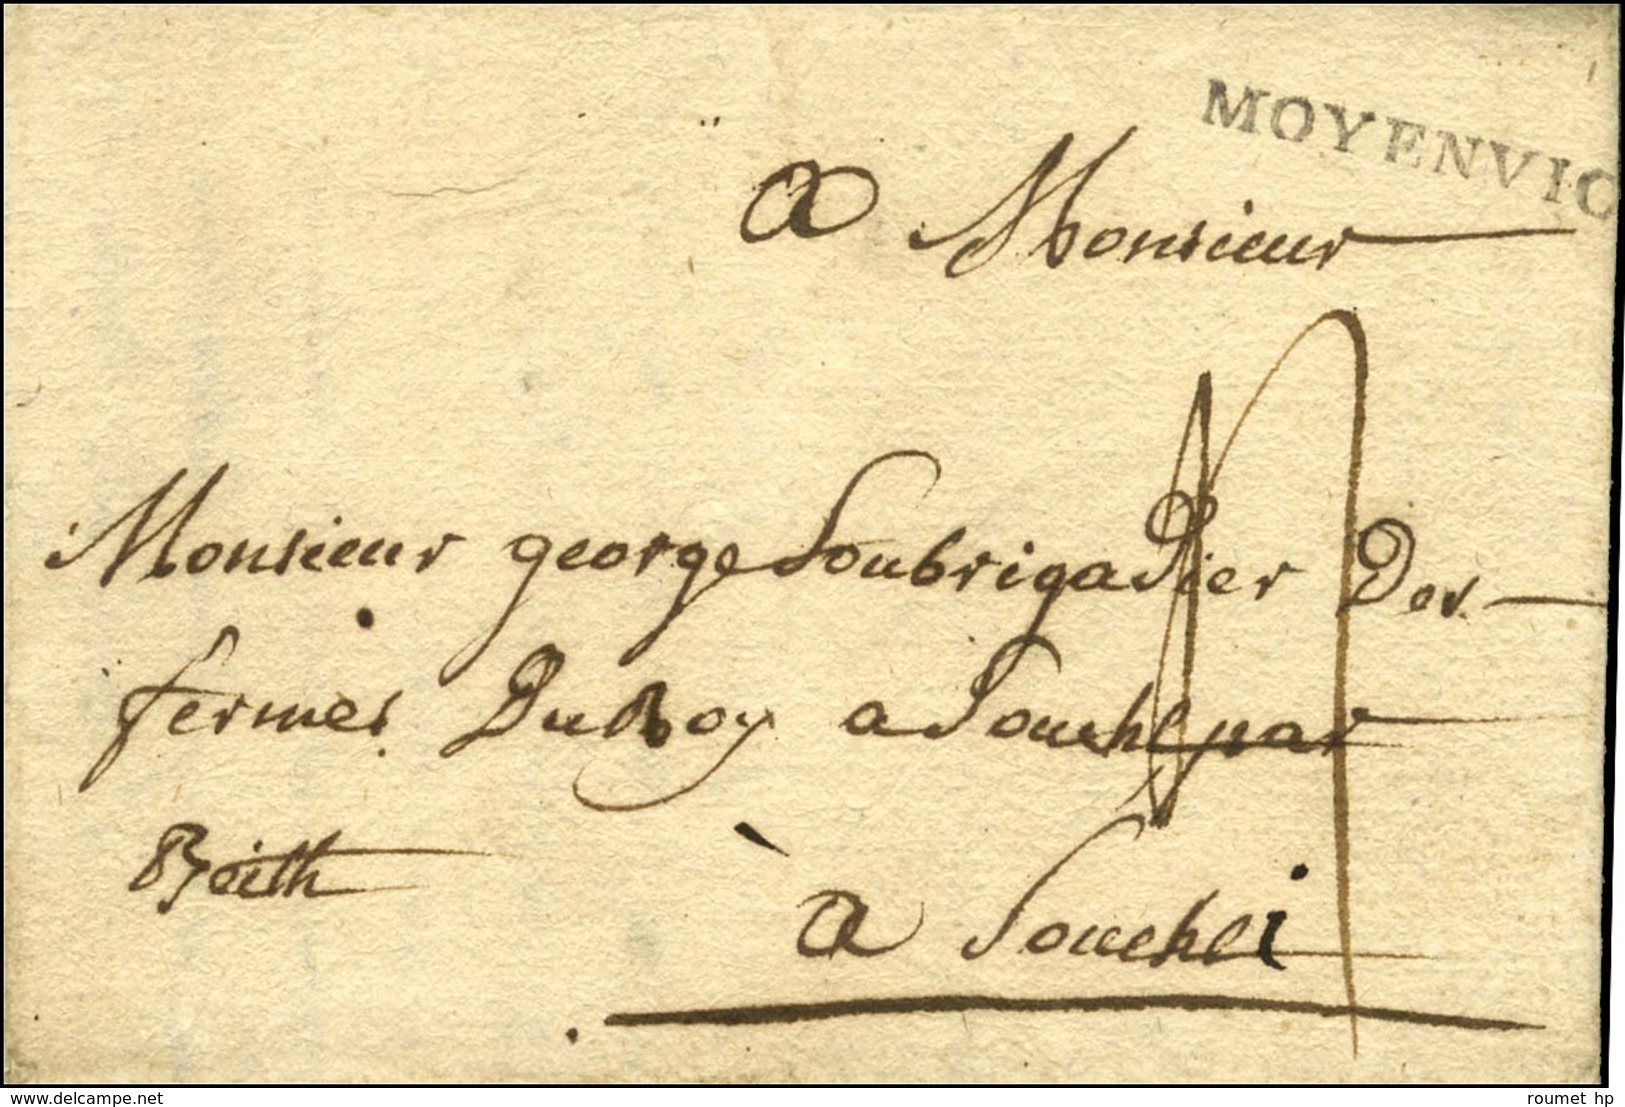 MOYENVIC
A Monsieur
Monsieur george Soubrigadier Des
fermes Du Roy a Souche par
Reith
à Souchei
www.delcampe.net
roumet hp